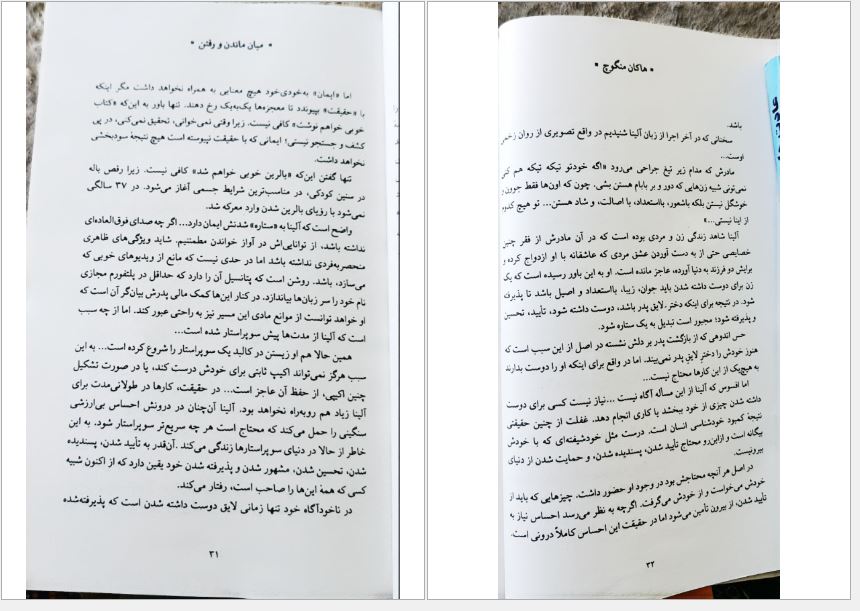 * میان ماندن و رفتن *
اما «ایمان» به‌خودی‌خود هیچ معنایی به همراه نخواهد داشت مگر اینکه
با «حقیقت» بپیوندد تا معجزه‌ها یک‌به‌یک رخ دهند. تنها باور به این‌که «کتاب
خوبی خواهم نوشت» کافی نیست. زیرا وقتی نمی‌خوانی، تحقیق نمی‌کنی، در پی
کشف و جستجو نیستی؛ ایمانی که با حقیقت نپیوسته است هیچ نتیجهٔ سودبخشی
نخواهد داشت.
تنها گفتن این‌که «بالرین خوبی خواهم شد» کافی نیست. زیرا رقص باله
در سنین کودکی، در مناسب‌ترین شرایط جسمی آغاز می‌شود. در ۳۷ سالگی
نمی‌شود با رؤیای بالرین شدن وارد معرکه شد.
واضح است که آلینا به «ستاره» شدنش ایمان دارد... اگر چه صدای فوق‌العاده‌ای
نداشته باشد، از توانایی‌اش در آواز خواندن مطمئنیم. شاید ویژگی‌های ظاهری
منحصربه‌فردی نداشته باشد اما در حدی نیست که مانع از ویدیوهای خوبی که
می‌سازد، باشد. روشن است که پتانسیل آن را دارد که حداقل در پلتفورم مجازی
نام خود را سر زبان‌ها بیاندازد. در کنار این‌ها کمک مالی پدرش بیان‌گر آن است که
او خواهد توانست از موانع مادی این مسیر نیز به راحتی عبور کند. اما از چه سبب
است که آلینا از مدت‌ها پیش سوپراستار شده است...
همین حالا هم او زیستن در کالبد یک سوپراستار را شروع کرده است... به این
سبب هرگز نمی‌تواند اکیپ ثابتی برای خودش درست کند، یا در صورت تشکیل
چنین اکیپی، از حفظ آن عاجز است... در حقیقت، کارها در طولانی‌مدت برای
آلینا زیاد هم روبه‌راه نخواهد بود. آلینا آن‌چنان در درونش احساس بی‌ارزشی
سنگینی را حمل می‌کند که محتاج است هر چه سریع‌تر سوپراستار شود. به این
خاطر از حالا در دنیای سوپراستارها زندگی می‌کند. آن‌قدر به تأیید شدن، پسندیده
شدن، تحسین شدن، مشهور شدن و پذیرفته شدن خود یقین دارد که از اکنون شبیه
کسی که همهٔ این‌ها را صاحب است، رفتار می‌کند.
در ناخودآگاه خود تنها زمانی لایق دوست داشته شدن است که پذیرفته‌شده
۳۱
* هاکان منگوچ *
باشد.
سخنانی که در آخر اجرا از زبان آلینا شنیدیم در واقع تصویری از روان زخمی
اوست...
مادرش که مدام زیر تیغ جراحی می‌رود «اگه خودتو تیکه تیکه هم کنی
نمی‌تونی شبیه زن‌هایی که دور و بر بابام هستن بشی. چون که اون‌ها فقط جوون و
خوشگل نیستن بلکه باشعور، بااستعداد، با اصالت، و شاد هستن... تو هیچ کدوم
از اینا نیستی...»
آلینا شاهد زندگی زن و مردی بوده است که در آن مادرش از فقر چنین
خصایصی حتی از به دست آوردن عشق مردی که عاشقانه با او ازدواج کرده و
برایش دو فرزند به دنیا آورده، عاجز مانده است. او به این باور رسیده است که یک
زن برای دوست داشته شدن باید جوان، زیبا، بااستعداد و اصیل باشد تا پذیرفته
شود. در نتیجه برای اینکه دختر لایق پدر باشد، دوست داشته شود، تأیید، تحسین
و پذیرفته شود؛ مجبور است تبدیل به یک ستاره شود.
حس اندوهی که از بازگشت پدر بر دلش نشسته در اصل از این سبب است که
هنوز خودش را دختر لایق پدر نمی‌بیند. اما در واقع برای اینکه او را دوست بدارند
به هیچ‌یک از این کارها محتاج نیست...
اما افسوس که آلینا از این مسأله آگاه نیست ...نیاز نیست کسی برای دوست
داشته شدن چیزی از خود ببخشد یا کاری انجام دهد. غفلت از چنین حقیقتی
نتیجهٔ کمبود خودشناسی انسان است. درست مثل خودشیفته‌ای که با خودش
بیگانه است و ازاین‌رو محتاج تأیید شدن، پسندیده شدن، و حمایت شدن از دنیای
بیرونیست.
در اصل هر آنچه محتاجش بود در وجود او حضور داشت. چیزهایی که باید از
خودش می‌خواست و از خودش می‌گرفت. اگرچه به نظر می‌رسد احساس نیاز به
تأیید شدن، از بیرون تأمین می‌شود اما در حقیقت این احساس کاملاً درونی است.
۳۲